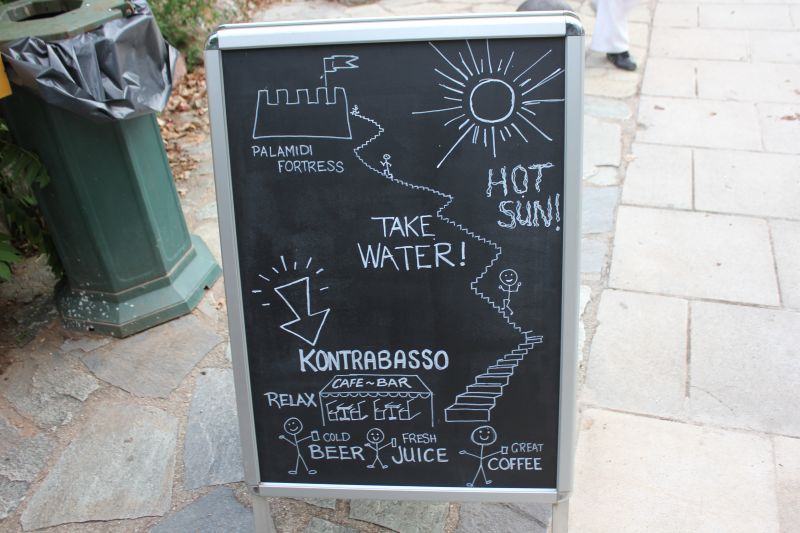 PALAMIDI
FORTRESS
HOT
SUN!
TAKE
WATER!
KONTRABASSO
CAFE~BAR
RELAX
COLD
BEER
FRESH
JUICE
GREAT
COFFEE